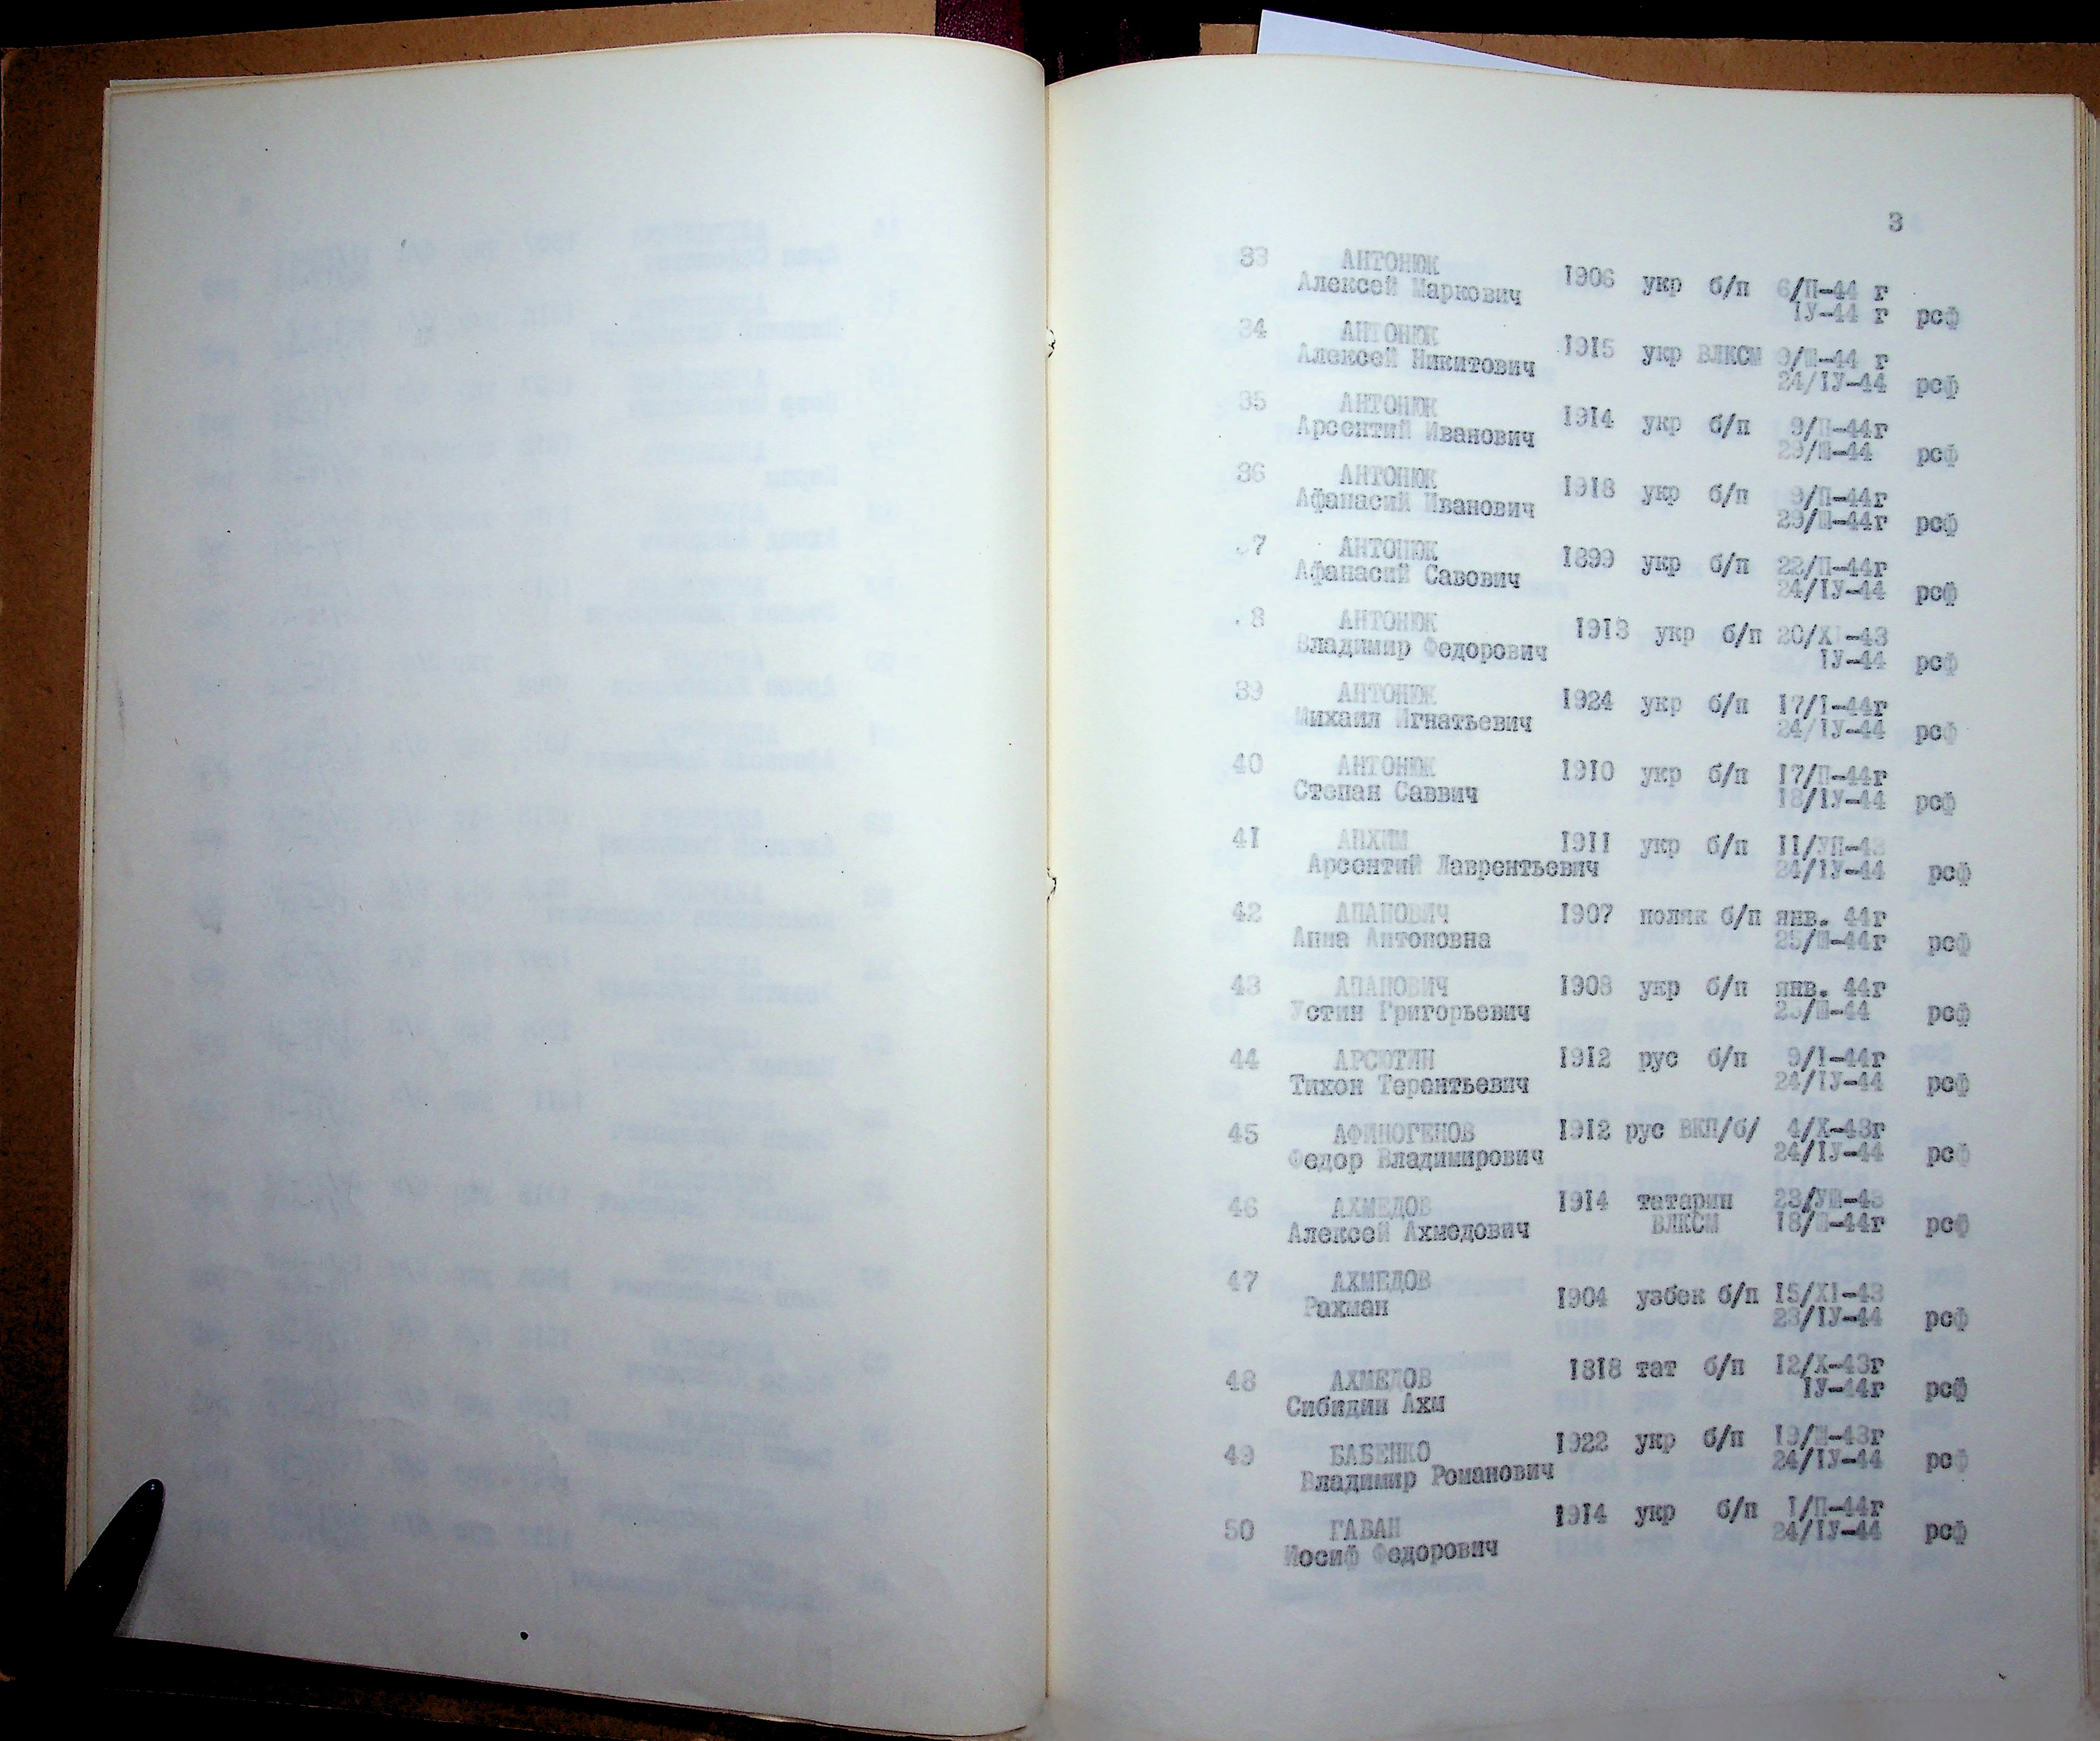 3
33 АНТОНЮК
Алексей Маркович 1906 укр б/п 6/П-44 г
1У-44 г рсф
34 АНТОНЮК
Алексей Никитович 1915 укр ВЛКСМ 9/Ш-44 г
24/1У-44 рсф
35 АНТОНЮК
Арсентий Иванович 1914 укр б/п 9/П-44г
29/Ш-44 рсф
36 АНТОНЮК
Афанасий Иванович 1918 укр б/п 9/П-44г
29/Ш-44г рсф
7 АНТОНЮК
Афанасий Савович 1899 укр б/п 22/П-44г
24/1У-44 рсф
8 АНТОНЮК
Владимир Федорович 1913 укр б/п 20/Х1-43
1У-44 рсф
39 АНТОНЮК
Михаил Игнатьевич 1924 укр б/п 17/1-44г
24/1У-44 рсф
40 АНТОНЮК 1910 укр б/п 17/П-44г
Степан Саввич 18/1У-44 рсф
41 АНХИМ 1911 укр б/п 11/УП-43
Арсентий Лаврентьевич 24/1У-44 рсф
42 АПАНОВИЧ 1907 поляк б/п янв. 44г
Анна Антоновна 25/Ш-44г рсф
43 АПАНОВИЧ 1908 укр б/п янв. 44г
Устин Григорьевич 25/Ш-44 рсф
44 АРСЮТИН 1912 рус б/п 9/1-44г
Тихон Терентьевич 24/1У-44 рсф
45 АФИНОГЕНОВ 1912 рус ВКП/б/ 4/Х-43г
Федор Владимирович 24/1У-44 рсф
46 АХМЕДОВ 1914 татарин 23/УШ-43
Алексей Ахмедович ВЛКСМ 18/Ш-44г рсф
47 АХМЕДОВ
Рахман 1904 узбек б/п 15/Х1-43
23/1У-44 рсф
48 АХМЕДОВ 1818 тат б/п 12/Х-43г
Сибидин Ахм 1У-44г рсф
49 БАБЕНКО 1922 укр б/п 19/Ш-43г
Владимир Романович 24/1У-44 рсф
50 ГАВАН 1914 укр б/п 1/П-44г
Иосиф Федорович 24/1У-44 рсф